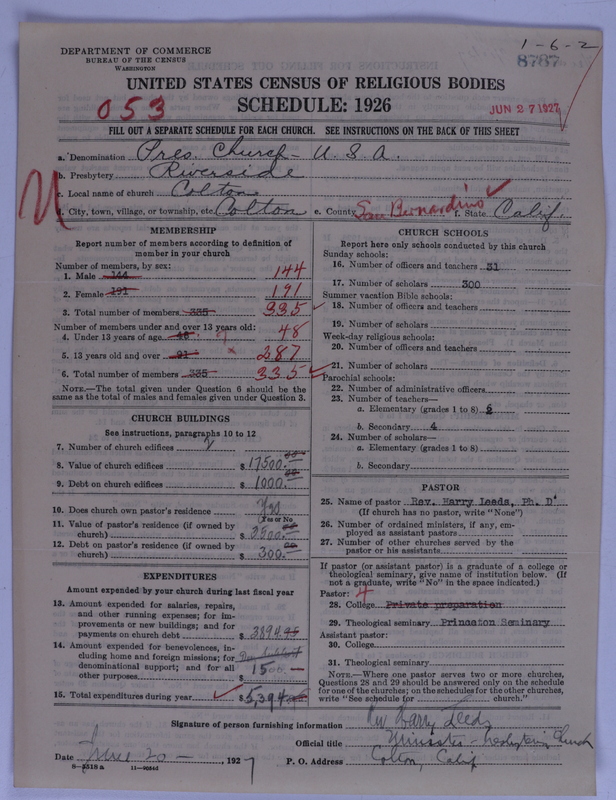 1-6-2
DEPARTMENT OF COMMERCE
BUREAU OF THE CENSUS
WASHINGTON
8787
UNITED STATES CENSUS OF RELIGIOUS BODIES
SCHEDULE: 1926
053
JUN 27 1927
FILL OUT A SEPARATE SCHEDULE FOR EACH CHURCH. SEE INSTRUCTIONS ON THE BACK OF THIS SHEET
a. Denomination Pres. Church - U.S.A.
b. Presbytery Riverside
c. Local name of church Colton
d. City, town, village, or township, etc. Colton e. County San Bernardino f. State Calif.
MEMBERSHIP
Report number of members according to definition of
member in your church
Number of members, by sex:
1. Male 144 144
2. Female 191 191
3. Total number of members 335 335
Number of members under and over 13 years old:
4. Under 13 years of age 48 48
5. 13 years old and over 287
6. Total number of members 335 335
NOTE.—The total given under Question 6 should be the
same as the total of males and females given under Question 3.
CHURCH BUILDINGS
See instructions, paragraphs 10 to 12
7. Number of church edifices 2
8. Value of church edifices $ 17500.00
9. Debt on church edifices $ 1000.00
10. Does church own pastor's residence Yes
(Yes or No
11. Value of pastor's residence (if owned by
church) $ 3500.00
12. Debt on pastor's residence (if owned by
church) $ 300.00
EXPENDITURES
Amount expended by your church during last fiscal year
13. Amount expended for salaries, repairs,
and other running expenses; for im-
provements or new buildings; and for
payments on church debt $ 3894.95
14. Amount expended for benevolences, in-
cluding home and foreign missions; for
denominational support; and for all
other purposes 1500
15. Total expenditures during year $ 5,394
CHURCH SCHOOLS
Report here only schools conducted by this church
Sunday schools:
16. Number of officers and teachers 31
17. Number of scholars 300
Summer vacation Bible schools:
18. Number of officers and teachers
19. Number of scholars
Week-day religious schools:
20. Number of officers and teachers
21. Number of scholars
Parochial schools:
22. Number of administrative officers
23. Number of teachers—
a. Elementary (grades 1 to 8) 6
b. Secondary 4
24. Number of scholars—
a. Elementary (grades 1 to 8)
b. Secondary
PASTOR
25. Name of pastor Rev. Harry Leeds, Ph. D
(If church has no pastor, write "None")
26. Number of ordained ministers, if any, em-
ployed as assistant pastors
27. Number of other churches served by the
pastor or his assistants
If pastor (or assistant pastor) is a graduate of a college or
theological seminary, give name of institution below. (If
not a graduate, write "No" in the space indicated.)
Pastor: 4
28. College Private preparation
29. Theological seminary Princeton Seminary
Assistant pastor:
30. College
31. Theological seminary
NOTE.—Where one pastor serves two or more churches,
Questions 28 and 29 should be answered only on the schedule
for one of the churches; on the schedules for the other churches,
write "See schedule for church."
Signature of person furnishing information Rev Harry Leeds
Official title Minister - Presbyterian Church
Date June 20 - 1927 P. O. Address Colton, Calif
8-5318a 11-9054d